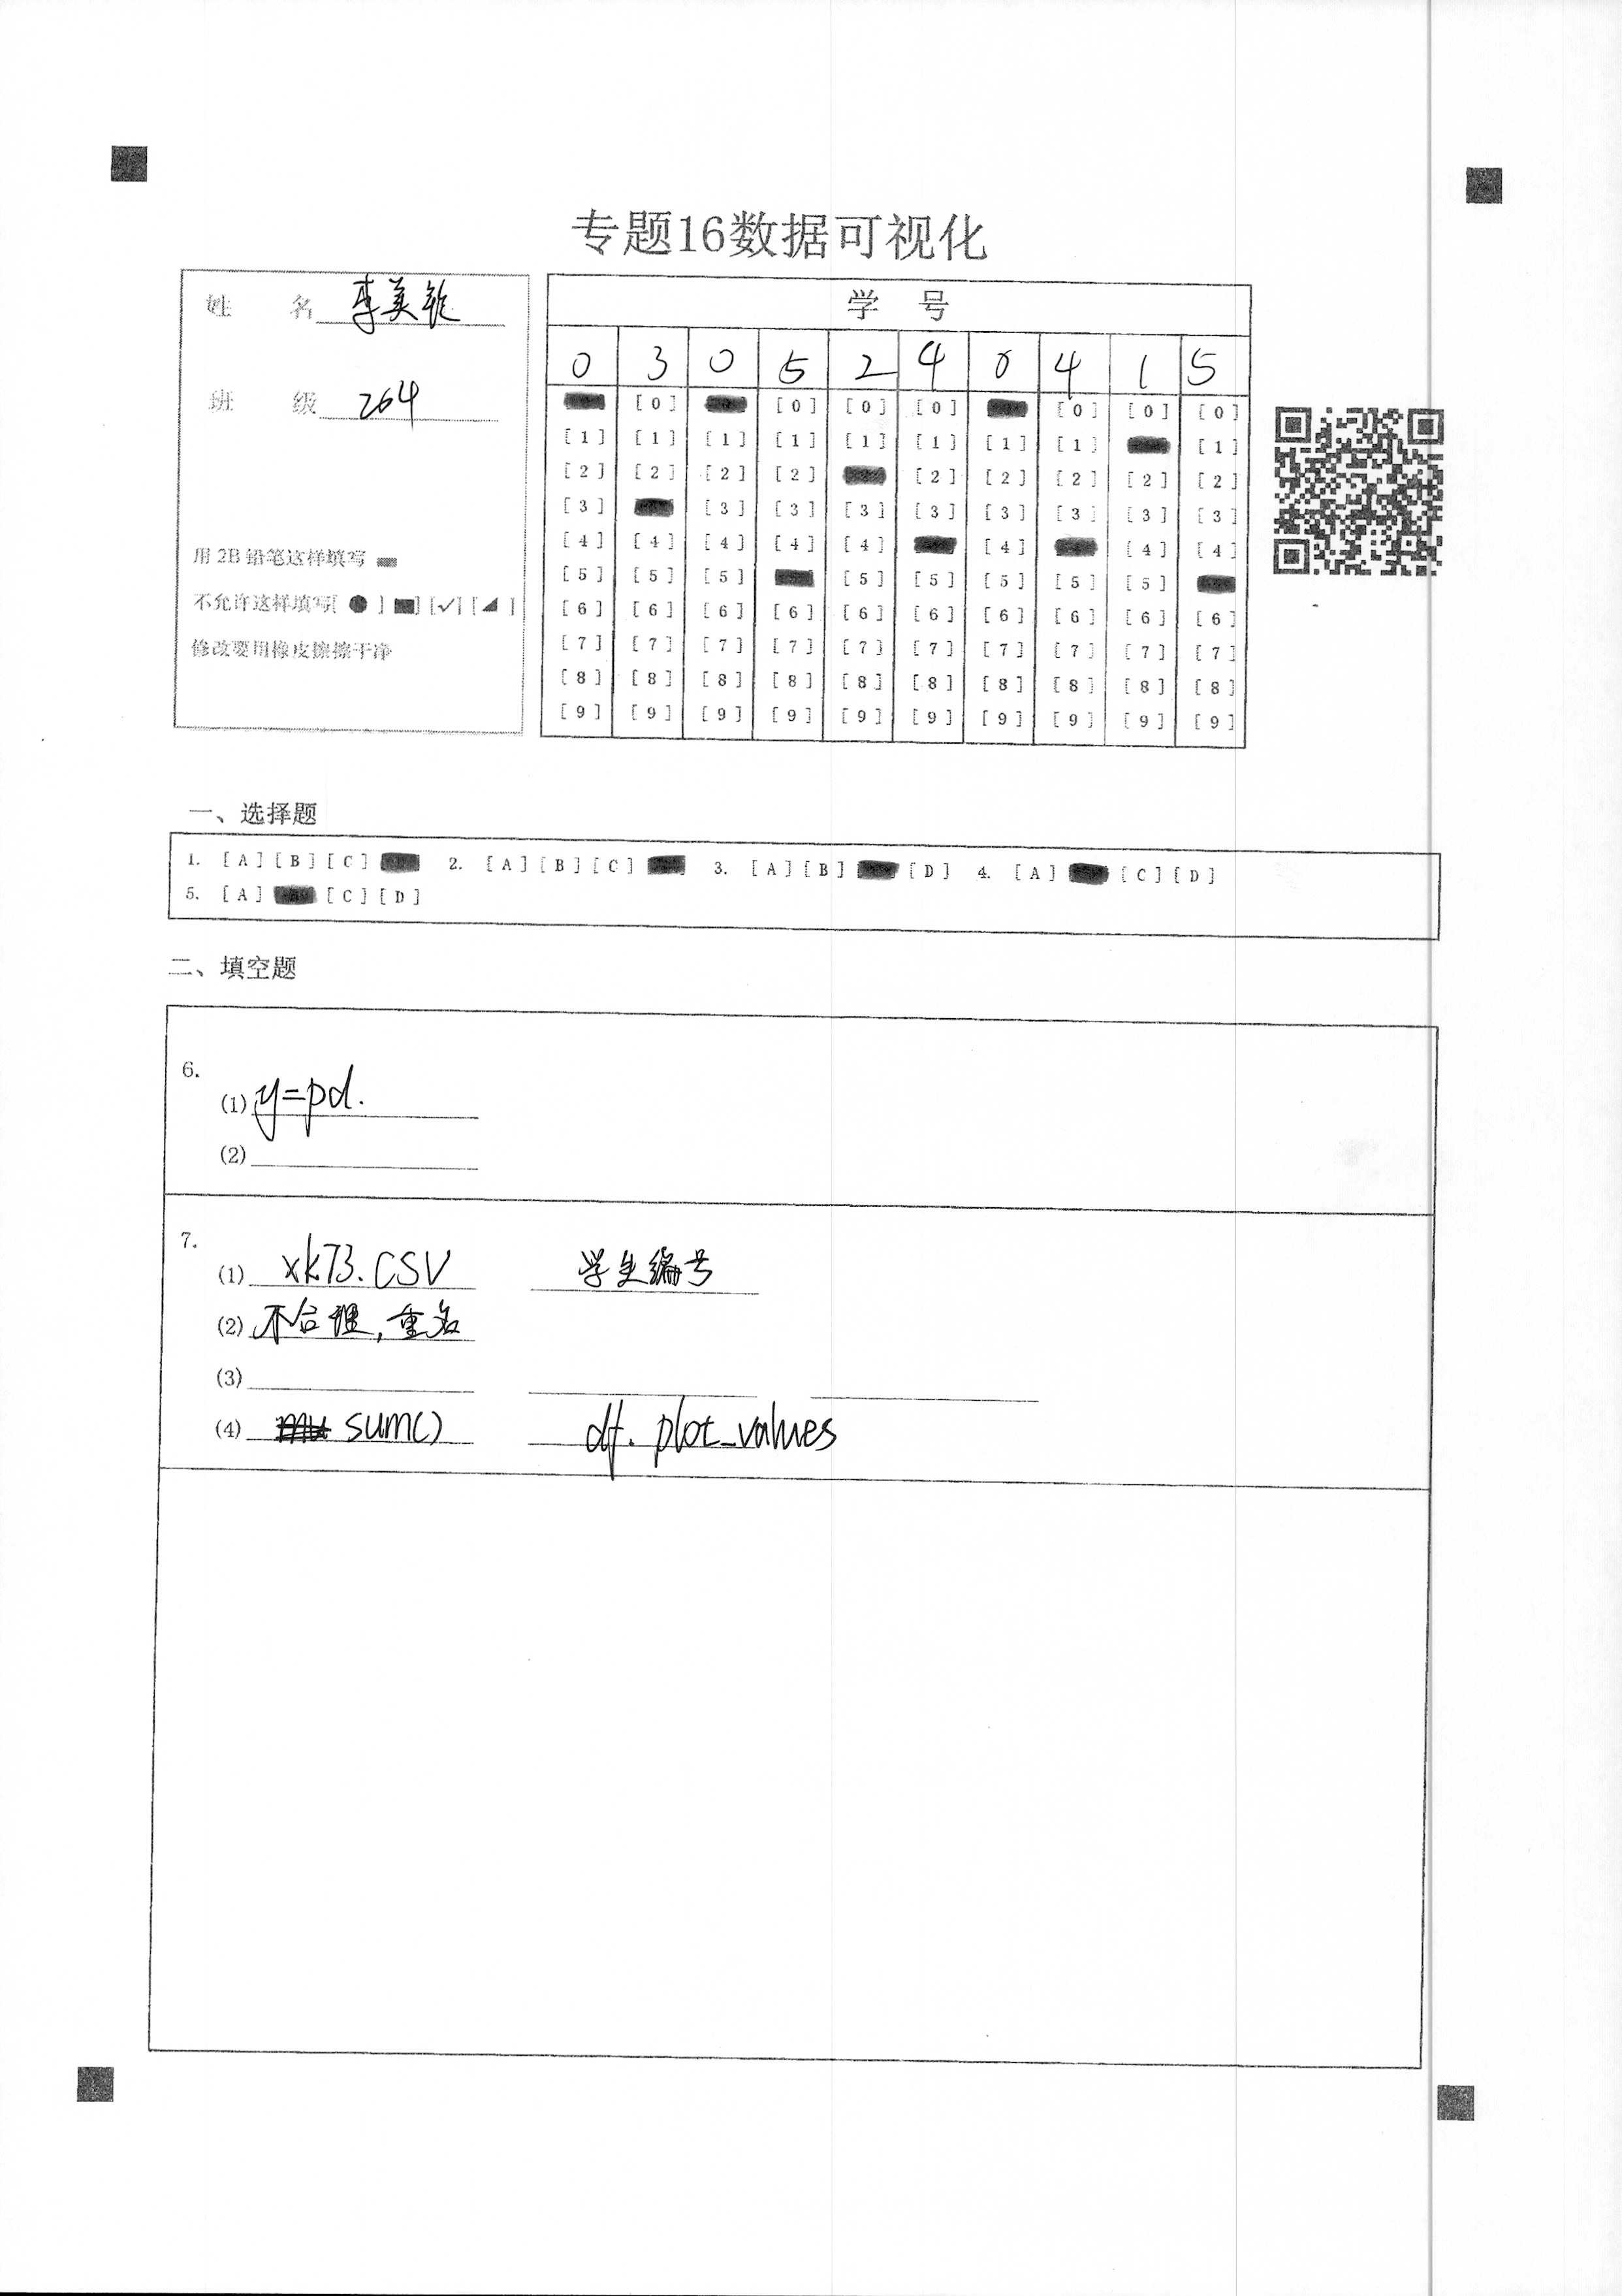 专题16数据可视化
姓 名 李美
班 级 264
用 2B 铅笔这样填写
不允许这样填写[ ● ] [■] [✓] [◢ ]
修改要用橡皮擦擦干净
学 号
0 3 0 5 2 4 0 4 1 5
[0] [0] [0] [0] [0] [0] [0]
[1] [1] [1] [1] [1] [1] [1] [1] [1]
[2] [2] [2] [2] [2] [2] [2] [2] [2]
[3] [3] [3] [3] [3] [3] [3] [3] [3]
[4] [4] [4] [4] [4] [4] [4] [4]
[5] [5] [5] [5] [5] [5] [5] [5]
[6] [6] [6] [6] [6] [6] [6] [6] [6] [6]
[7] [7] [7] [7] [7] [7] [7] [7] [7] [7]
[8] [8] [8] [8] [8] [8] [8] [8] [8] [8]
[9] [9] [9] [9] [9] [9] [9] [9] [9] [9]
一、选择题
1. [A] [B] [C] 2. [A] [B] [C] 3. [A] [B] [D] 4. [A] [C] [D]
5. [A] [C] [D]
二、填空题
6.
(1) y=pd.
(2)
7.
(1) xk73.csv 学生编号
(2) 不合理,重名
(3)
(4) sum() df.plot_values